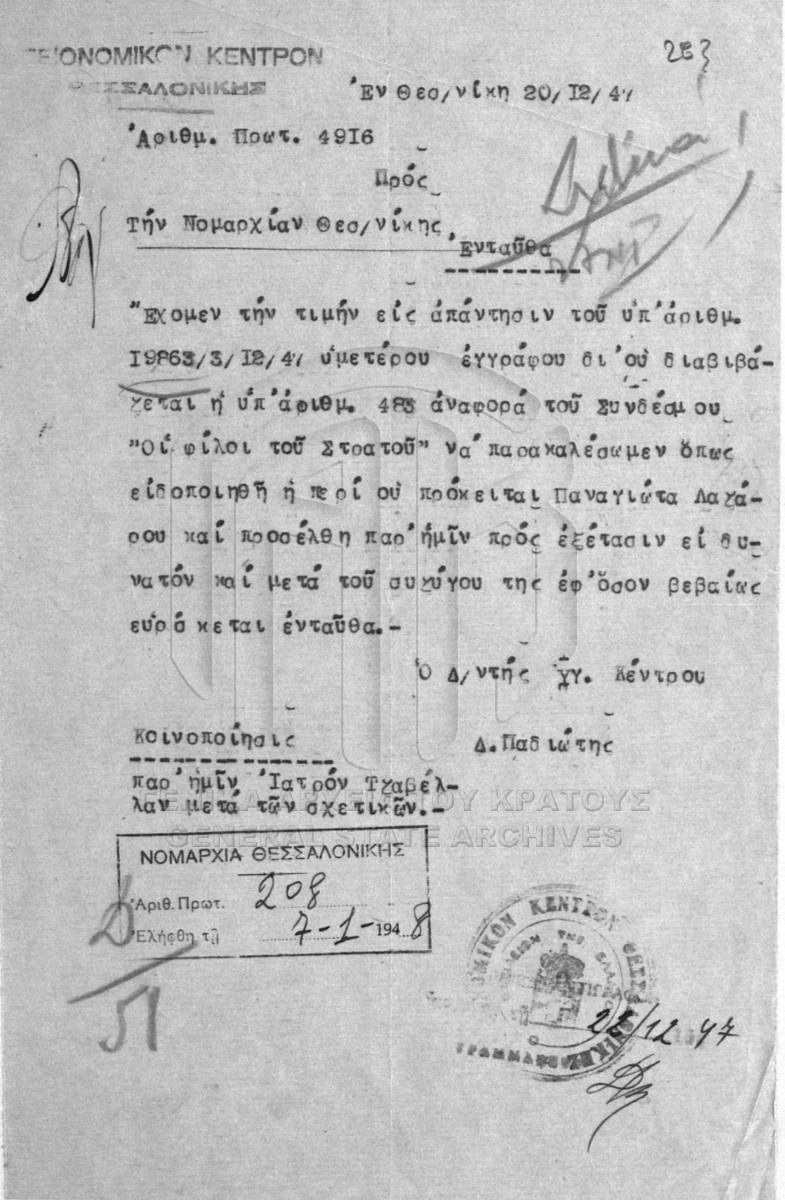 ΥΓΕΙΟΝΟΜΙΚΟΝ ΚΕΝΤΡΟΝ
ΘΕΣΣΑΛΟΝΙΚΗΣ
Ἐν Θεσ/νίκη 20/12/47
Ἀριθμ. Πρωτ. 4916
Πρός
Τήν Νομαρχίαν Θεσ/νίκης
Ἐνταῦθα
Ἔχομεν τήν τιμήν είς ἀπάντησιν τοῦ ὑπ'ἀριθμ.
19863/3/12/47 ὑμετέρου ἐγγράφου δι'οὑ διαβιβά-
ζεται ἡ ὑπ'ἀριθμ. 483 ἀναφορά τοῦ Συνδέσμου
"Οἱ φίλοι τοῦ Στρατοῦ" νά παρακαλέσωμεν ὅπως
εἰδοποιηθῆ ἡ περί οὑ πρόκειται Παναγιώτα Λαζά-
ρου καί προσέλθη παρ'ἡμῖν πρός ἐξέτασιν εἰ δυ-
νατόν καί μετά τοῦ συζύγου της ἐφ'ὅσον βεβαίως
εὑρίσκεται ἐνταῦθα.-
Ὁ Δ/ντής Ὑγ. Κέντρου
Δ. Παδιώτης
Κοινοποίησις
παρ'ἡμῖν Ἰατρόν Τζαβέλ-
λαν μετά τῶν σχετικῶν.-
ΓΕΝΙΚΑ ΑΡΧΕΙΑ ΤΟΥ ΚΡΑΤΟΥΣ
GENERAL STATE ARCHIVES
ΝΟΜΑΡΧΙΑ ΘΕΣΣΑΛΟΝΙΚΗΣ
Ἀριθ. Πρωτ. 208
Ἐλήφθη τῇ 7-1-1948
51
ΚΕΝΤΡΟΝ ΘΕΣΣΑΛΟΝΙΚΗΣ
22/12 47